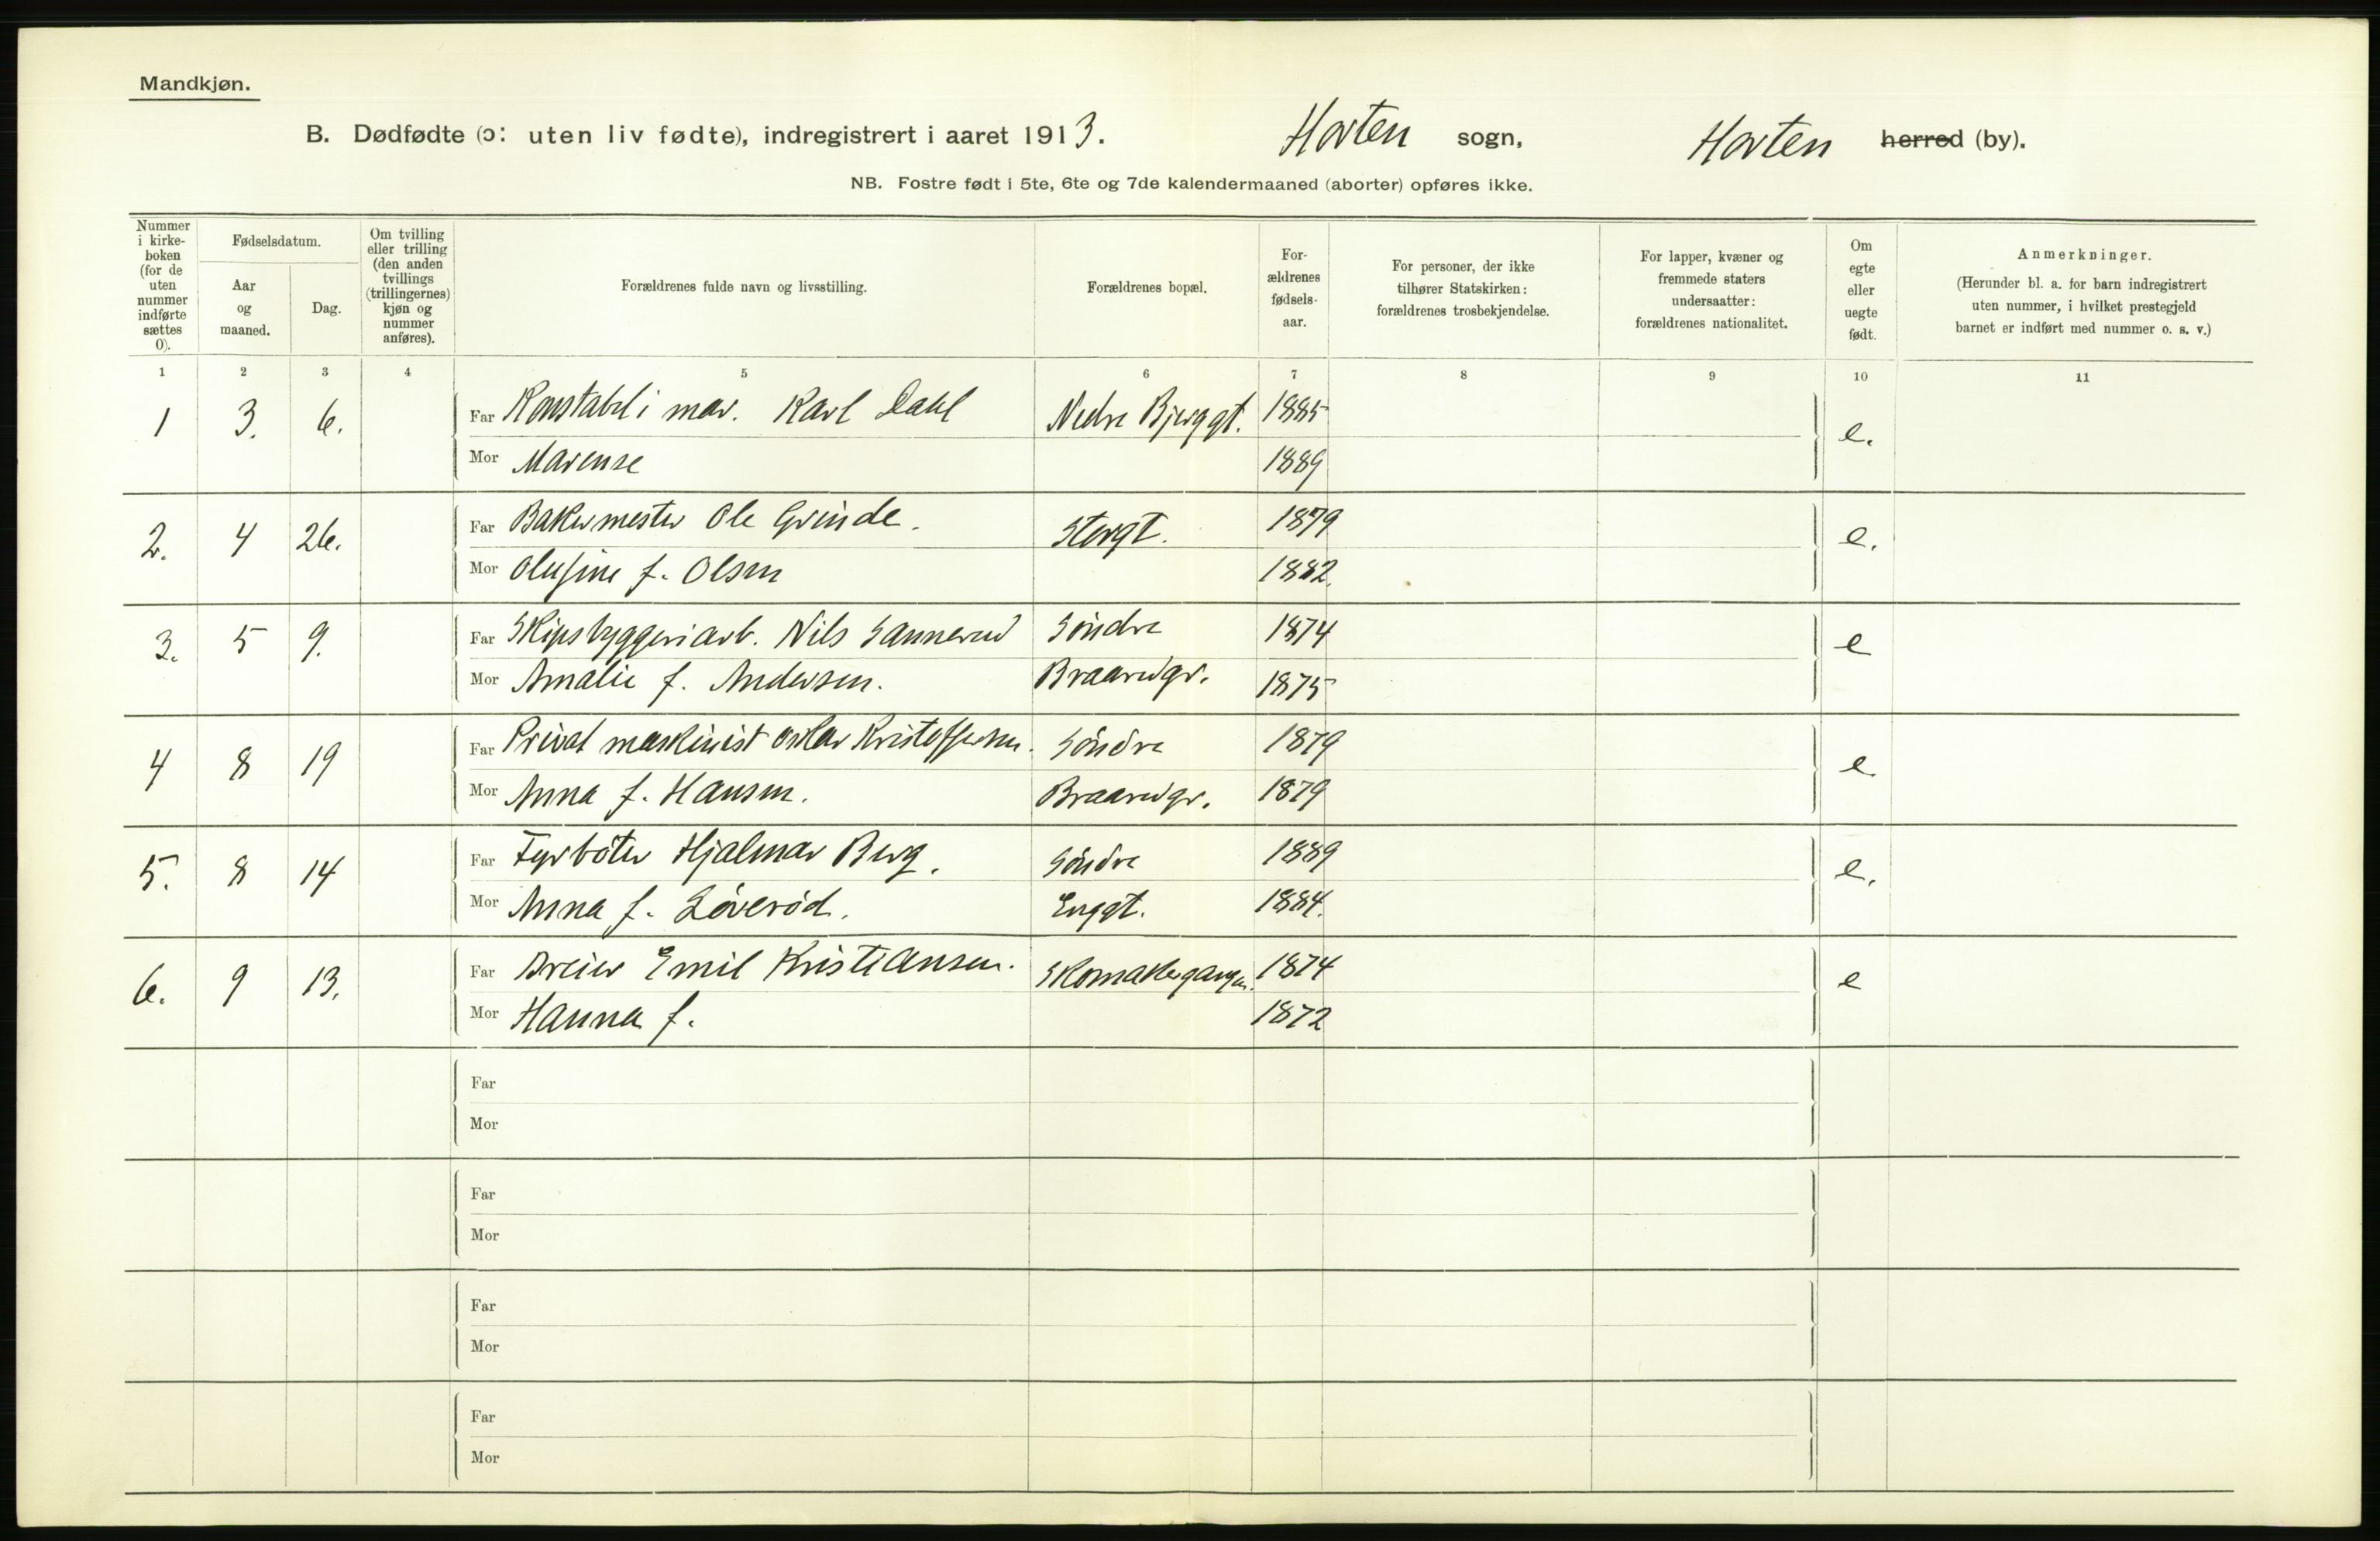 Mandkjøn.
B. Dødfødte (ɔ: uten liv fødte), indregistrert i aaret 1913. Horten sogn, Horten herred (by).
NB. Fostre født i 5te, 6te og 7de kalendermaaned (aborter) opføres ikke.
Nummer i kirke-boken (for de uten nummer indførte sættes 0).
Fødselsdatum.
Aar og maaned.
Dag.
Om tvilling eller trilling (den anden tvillings (trillingernes) kjøn og nummer anføres).
Forældrenes fulde navn og livsstilling.
Forældrenes bopæl.
For-ældrenes fødsels-aar.
For personer, der ikke tilhører Statskirken: forældrenes trosbekjendelse.
For lapper, kvæner og fremmede staters undersaatter: forældrenes nationalitet.
Om egte eller uegte født.
Anmerkninger.
(Herunder bl. a. for barn indregistrert uten nummer, i hvilket prestegjeld barnet er indført med nummer o. s. v.)
1 2 3 4 5 6 7 8 9 10 11
1 3. 6. Far Konstabel i mar. Karl Dahl Nedre Bjerggt. 1885 e.
Mor Marense 1889
2. 4 26. Far Bakermester Ole Grinde. Storgt. 1879 e.
Mor Olufine f. Olsen 1882.
3. 5 9. Far Skipsbyggeriarb. Nils Sannerud Söndre 1874 e
Mor Amalie f. Andersen. Braarudgr. 1875
4 8 19 Far Privat maskinist Oskar Kristoffersen. Söndre 1879 e.
Mor Anna f. Hansen. Braarudgr. 1879
5. 8 14 Far Fyrböter Hjalmar Berg. Söndre 1889 e.
Mor Anna f. Löveröd. Enggt. 1884.
6. 9 13. Far Dreier Emil Kristiansen. Skomakergangen. 1874 e
Mor Hanna f. 1872
Far
Mor
Far
Mor
Far
Mor
Far
Mor